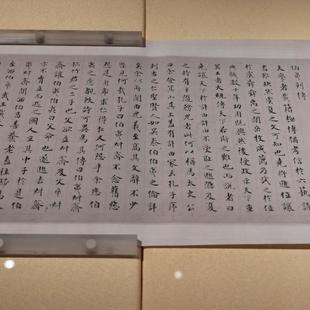 伯夷列傳
夫學者載籍極博猶考信於六藝詩
書雖缺然虞夏之文可知也堯將遜位讓
於虞舜舜禹之間岳牧咸薦乃試之於位
典職數十年功用既興然後授政示天下重
器王者大統傳天下若斯之難也而說者曰
堯讓天下於許由許由不受恥之逃隱及夏
之時有卞隨務光者此何以稱焉太史公
曰余登箕山其上蓋有許由冢云孔子序
列古之仁聖賢人如吳太伯伯夷之倫詳
矣余以所聞由光義至高其文辭不少
概見何哉孔子曰伯夷叔齊不念舊惡怨
是用希求仁得仁又何怨乎余悲伯
夷之意睹軼詩可異焉其傳曰伯夷叔齊
孤竹君之二子也父欲立叔齊及父卒叔
齊讓伯夷伯夷曰父命也遂逃去叔齊
亦不肯立而逃之國人立其中子於是伯
夷叔齊聞西伯昌善養老盍往歸焉